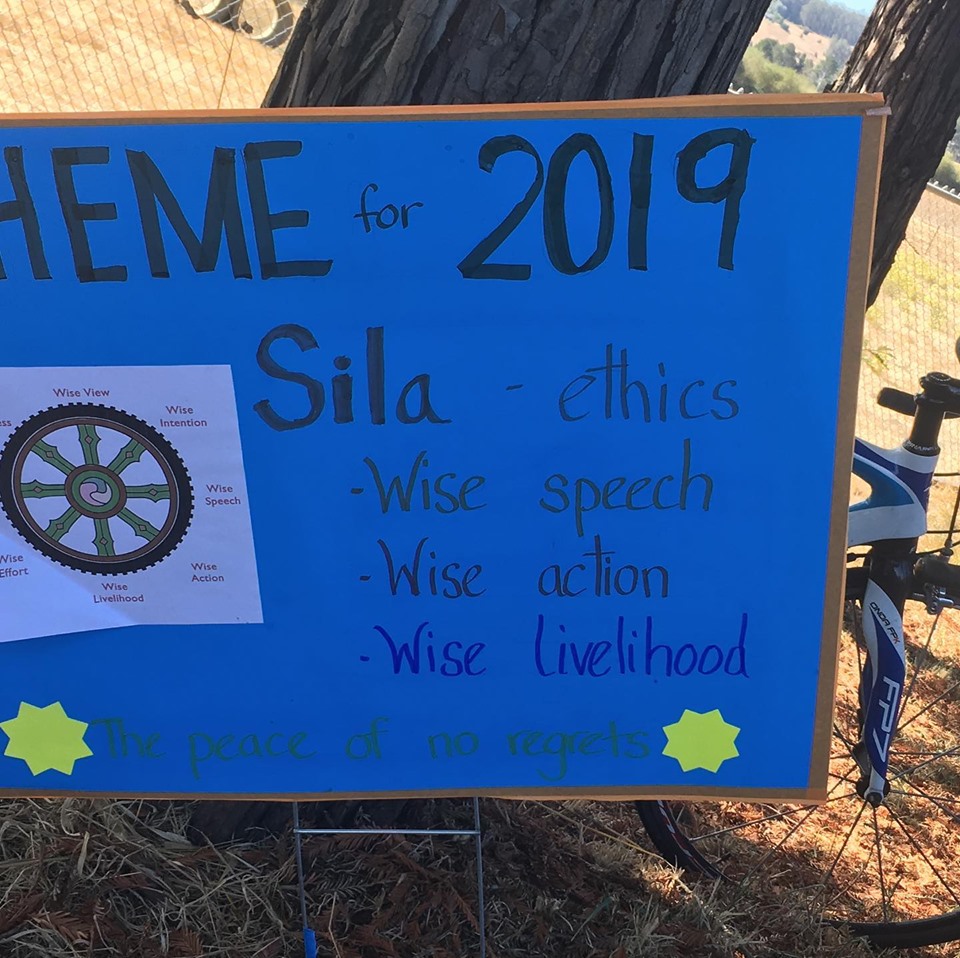 HEME for 2019
Sila - ethics
-Wise speech
-Wise action
-Wise livelihood
The peace of no regrets
Wise View
Wise
Intention
Wise
Speech
Wise
Action
Wise
Livelihood
Wise
Effort
ess
FP7